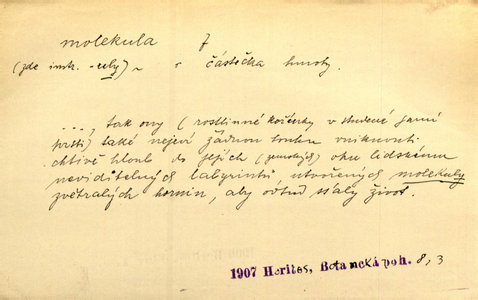 molekula f
(zde instr. -uly) ~ častečka hmoty.
..., tak ony (rostlinné kořínky v studené jarní
prsti) také nejeví žádnou touhu vniknouti
chtivě hloub do jejích (zemských) oku lidskému
neviditelných labyrintů, utvořených molekuly
zvětralých hornin, aby odtud ssály život.
1907 Herites, Botanická poh. 8, 3